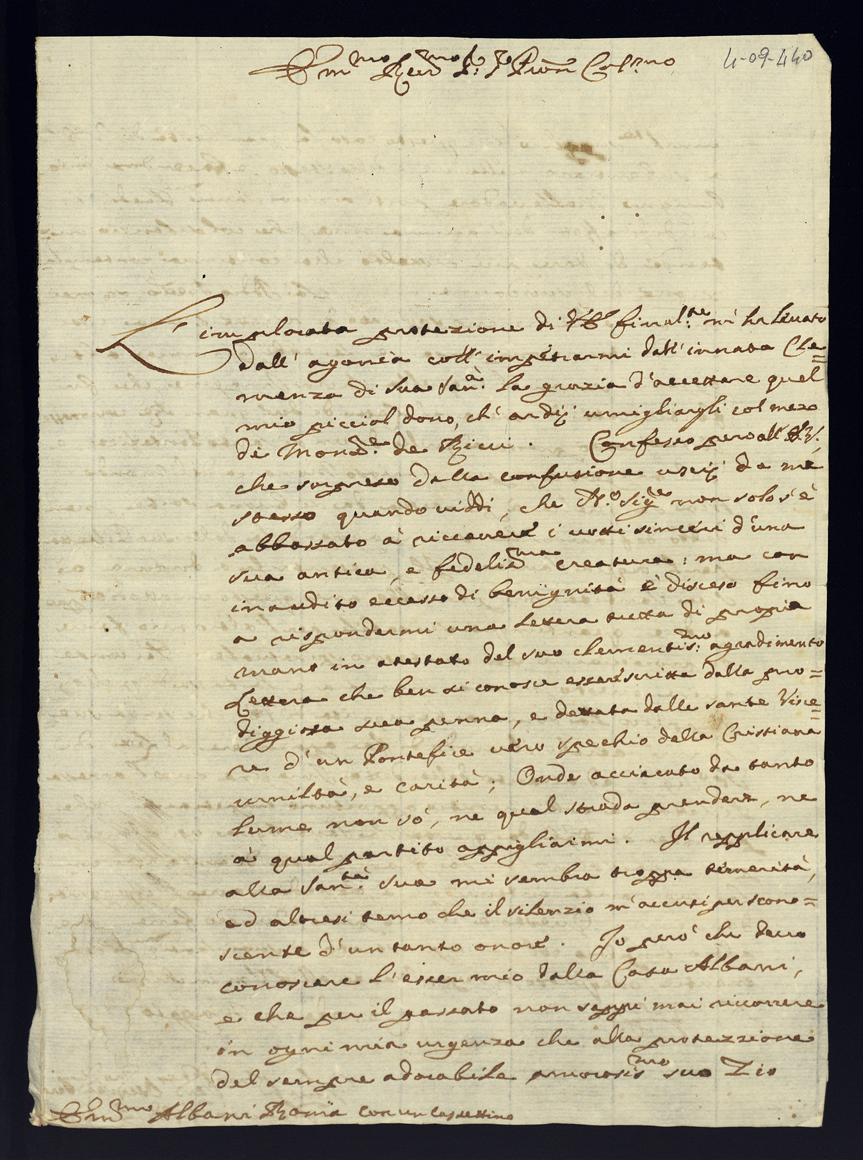 Em.mo Rev.mo S.r S.r Pron Col.mo
4-09-440
L'implorata protezione di V. E. final.te m'ha levato
dall'agonia coll'impetrarmi dall'innata Cle=
menza di sua San.à la grazia d'accettare quel
mio picciol dono, ch'ardij umigliargli col mezo
di Mons.re de Ricci. Confesso però all'E. V.,
che sorpreso dalla confusione uscij da me
stesso quando viddi, che N.ro Sig.re non solo s'è
abbassato à riccevere i voti sinceri d'una
sua antica, e fedelis.ma creatura: ma con
inaudito eccesso di benignità è disceso fino
a rispondermi una lettera tutta di propria
mano in atestato del suo clementis.mo agradimento
Lettera che ben si conosce esser scritta dalla pro=
diggiosa sua penna, e dettata dalle sante visce=
re d'un Pontefice vero specchio della Cristiana
umiltà, e carità; Onde acciecato da tanto
lume non sò, ne qual strada prender, ne
à qual partito appigliarmi. Il repplicare
alla San.tà sua mi sembra troppa temerità,
ed altresi temo che il silenzio m'accusi per scono=
scente d'un tanto onore. Io però che devo
conoscere l'esser mio dalla Casa Albani,
e che per il passato non seppi mai ricorrere
in ogni mia urgenza che alla protezzione
del sempre adorabile amorosis.mo suo Zio
Em.mo Albani Roma con un cassettino